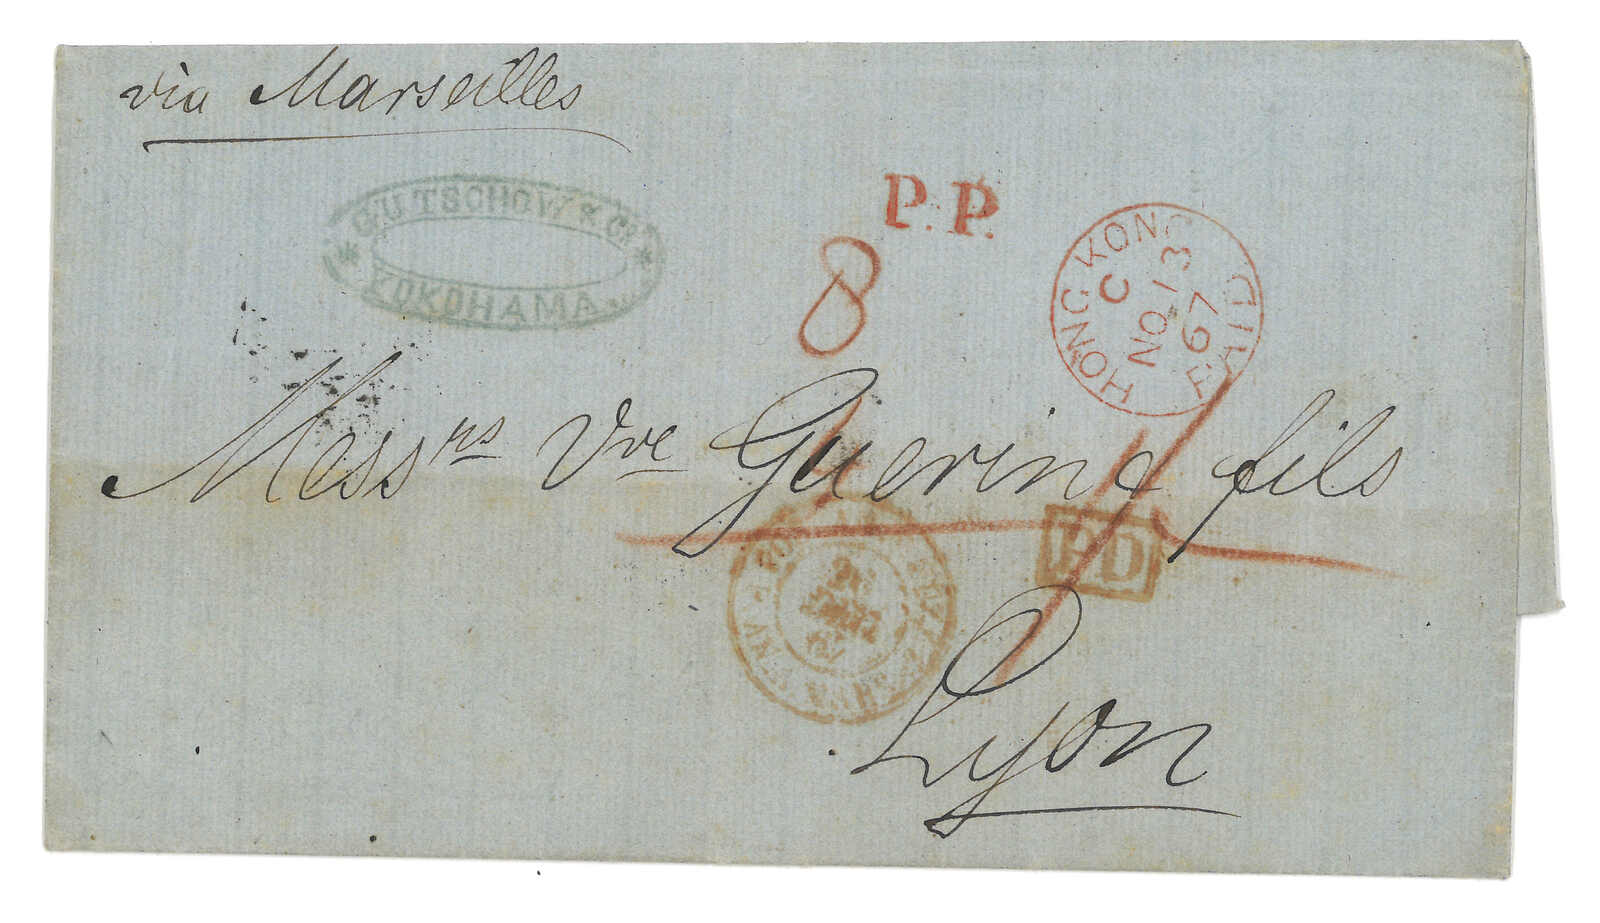 via Marseilles
GUTSCHOW & Co.
YOKOHAMA
P.P.
8
HONG KONG
C
NO 13
67
PAID
Messrs Vve Guerin & fils
P.D
Lyon